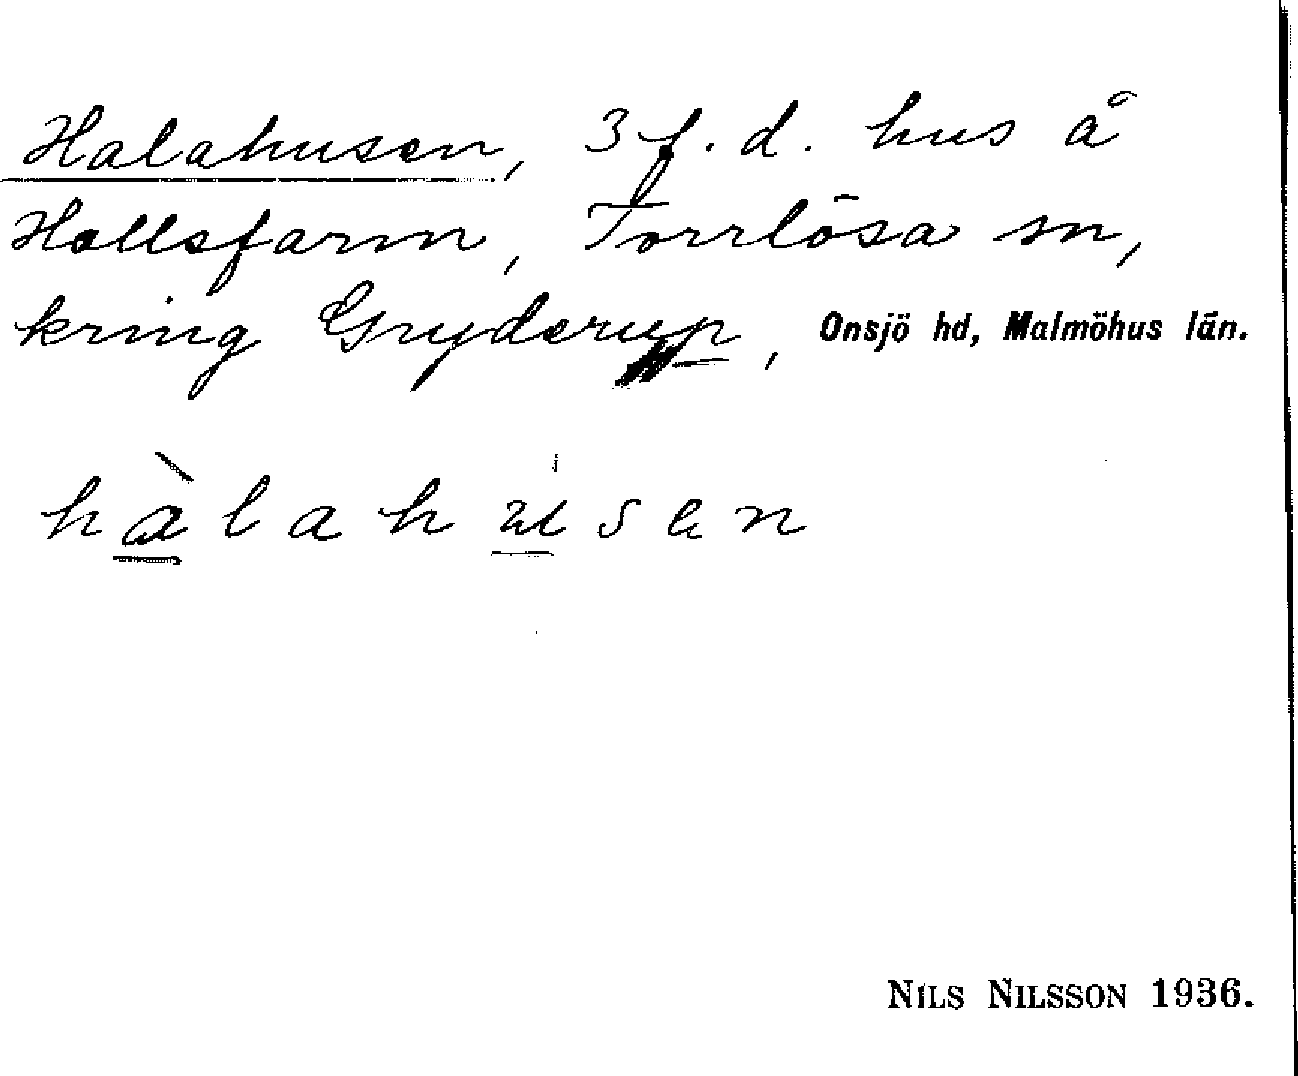 Halahusen, 3 f. d. hus å
Hallsfarm, Torrlösa sn,
kring Gryderup, Onsjö hd, Malmöhus län.
hàlahusen
NILS NILSSON 1936.